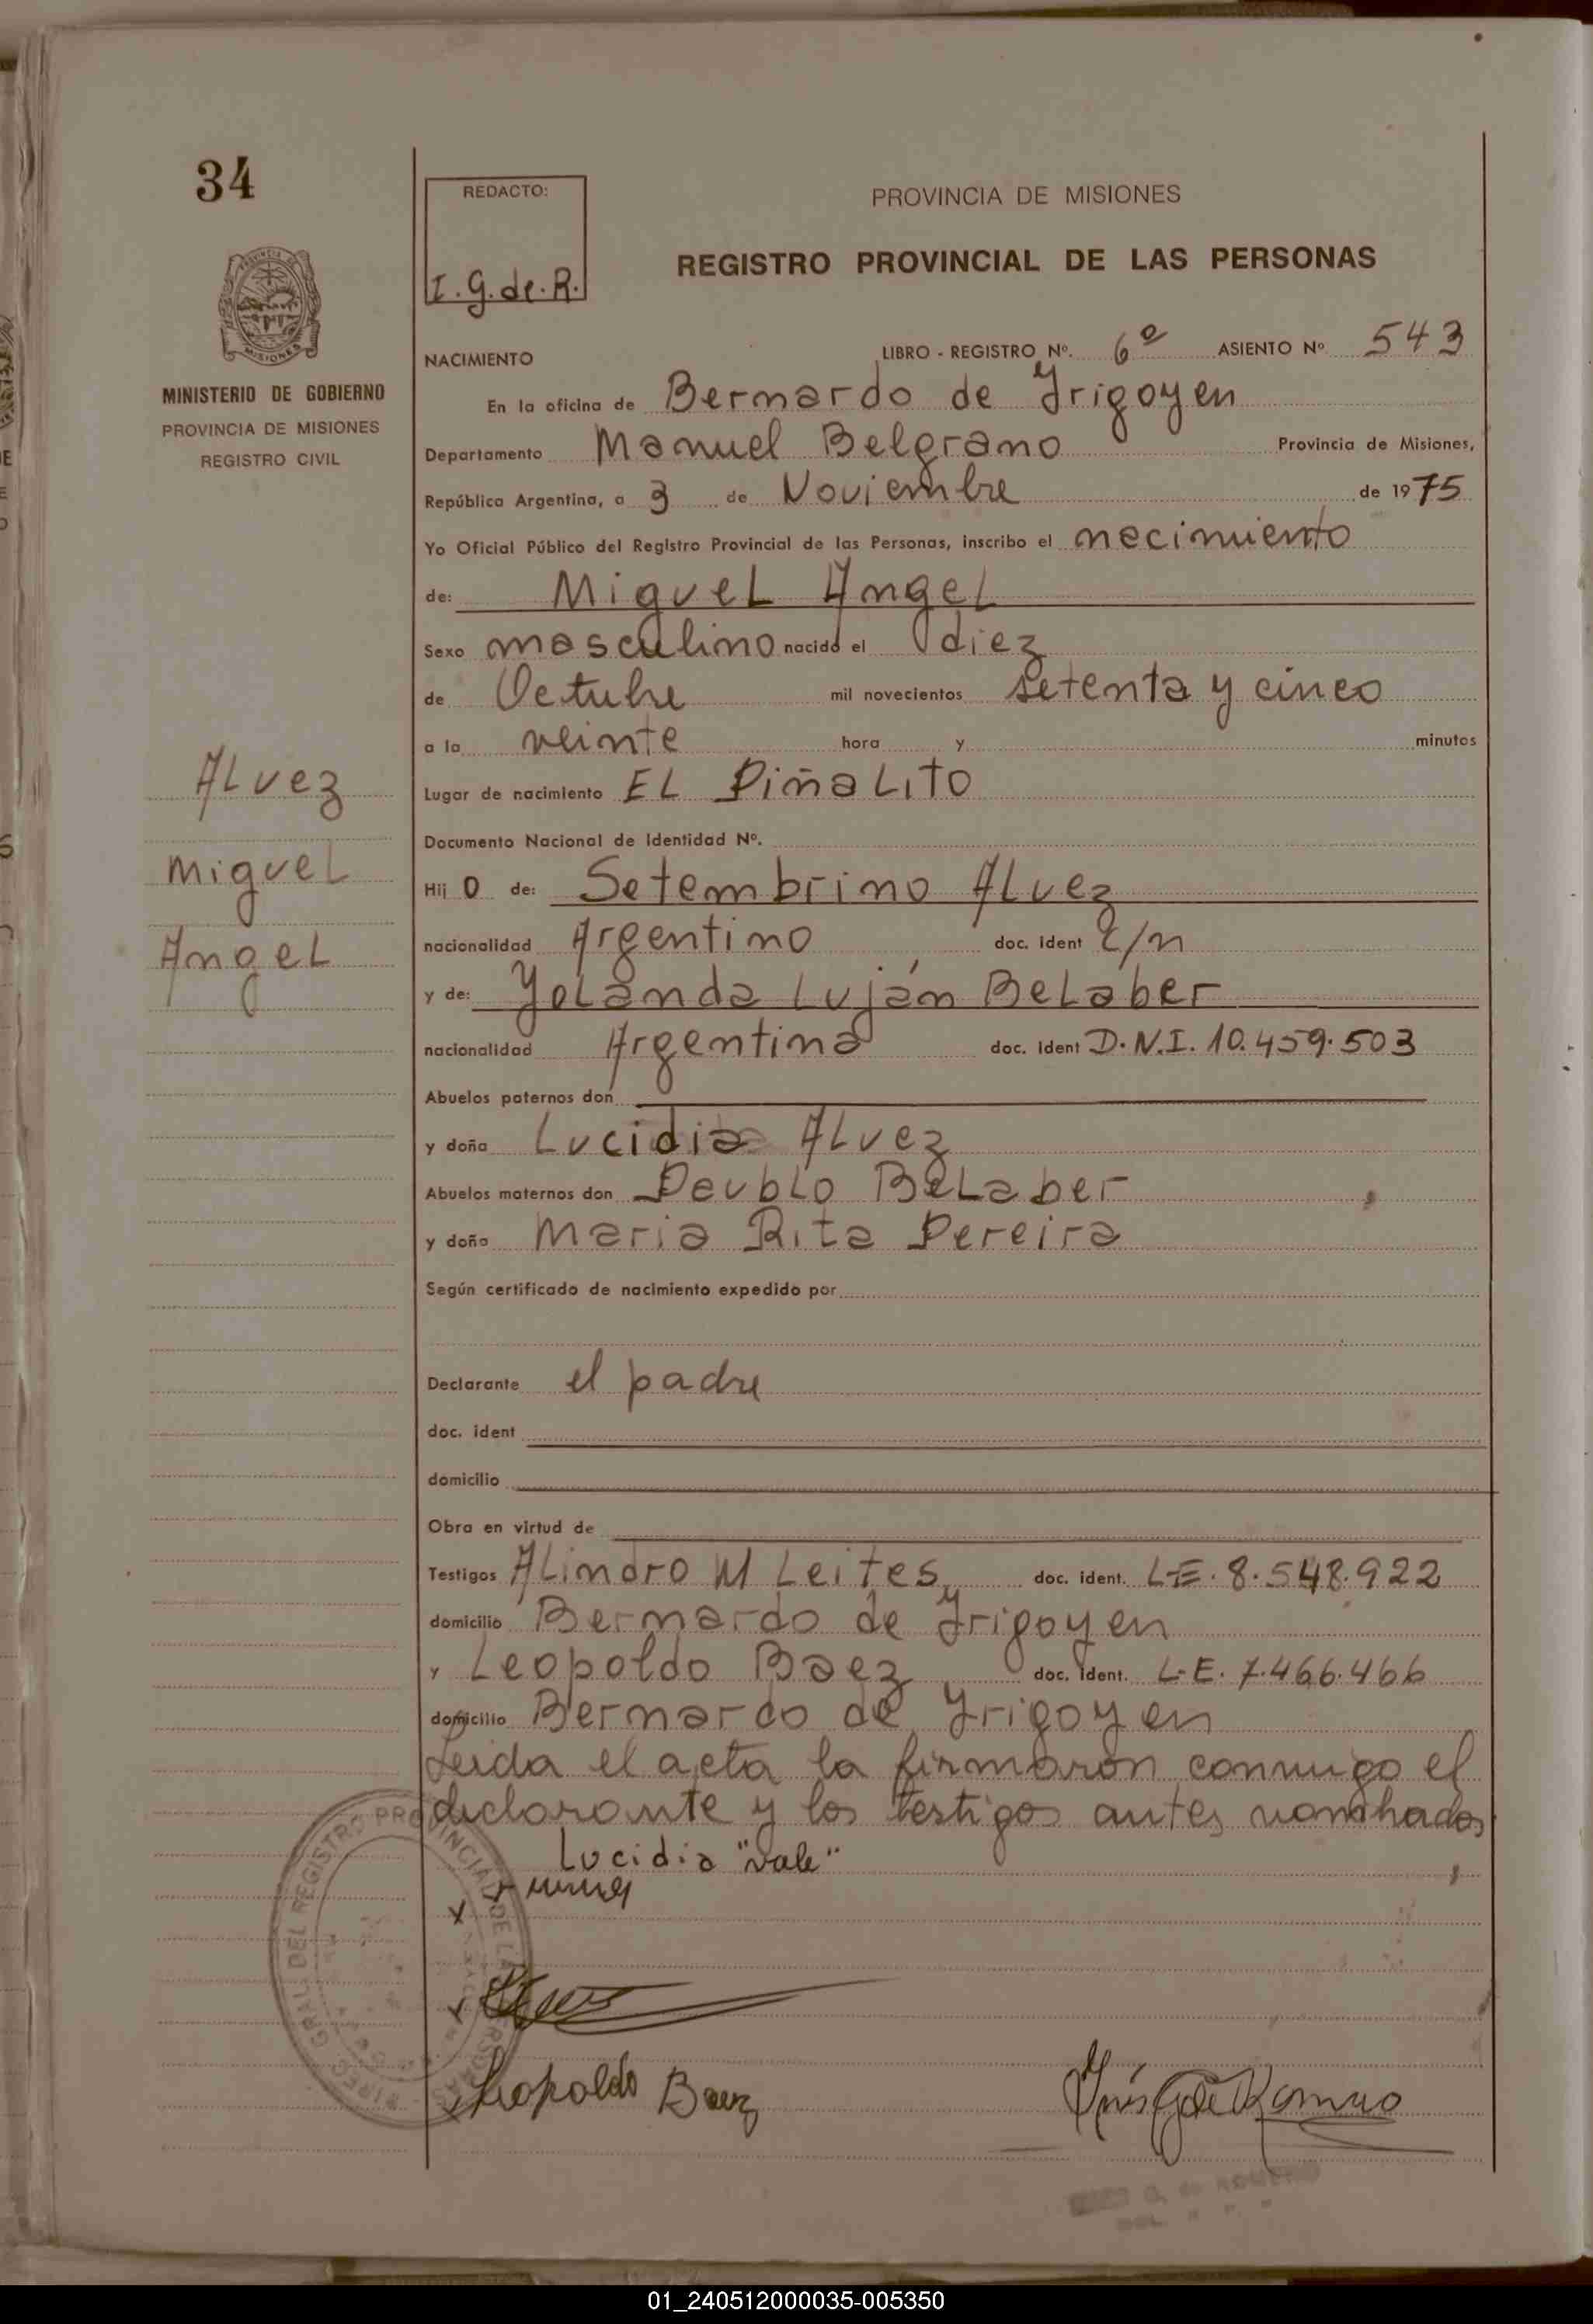 34
REDACTO:
I. G. de. R.
PROVINCIA DE MISIONES
REGISTRO PROVINCIAL DE LAS PERSONAS
PROVINCIA DE
MISIONES
MINISTERIO DE GOBIERNO
PROVINCIA DE MISIONES
REGISTRO CIVIL
NACIMIENTO LIBRO - REGISTRO Nº. 6º ASIENTO Nº 543
En la oficina de Bernardo de Yrigoyen
Departamento Manuel Belgrano Provincia de Misiones,
República Argentina, a 3 de Noviembre de 1975
Yo Oficial Público del Registro Provincial de las Personas, inscribo el nacimiento
de: Miguel Angel
Sexo masculino nacido el diez
de Octubre mil novecientos setenta y cinco
a la veinte hora y minutos
Lugar de nacimiento EL PiñaLito
Documento Nacional de Identidad Nº.
Hij o de: Setembrino Alvez
nacionalidad Argentino doc. ident
y de: Yolanda Luján Belaber
nacionalidad Argentina doc. ident D.N.I. 10.459.503
Abuelos paternos don
y doña Lucidia Alvez
Abuelos maternos don Belaber
y doña Maria Rita Pereira
Según certificado de nacimiento expedido por
Declarante el padre
doc. ident
domicilio
Obra en virtud de
Testigos Alindro M Leites doc. ident. L-E. 8.548.922
domicilio Bernardo de Yrigoyen
y Leopoldo Baez doc. ident. L-E. 7.466.466
domicilio Bernardo de Yrigoyen
Leida el acta la firmaron conmigo el
declarante y los testigos antes nombrados
Lucidia "vale"
Alvez
Miguel
Angel
DIREC. GRAL. DEL REGISTRO PROVINCIAL DE LAS PERSONAS
x
x
x Leopoldo Baez
Inés G de Romero
01_240512000035-005350